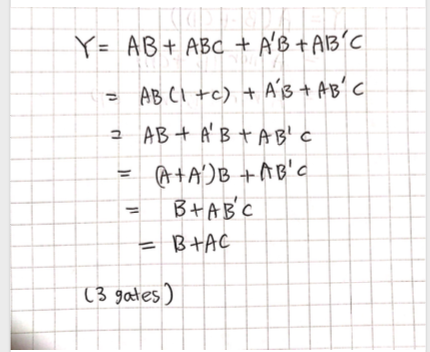 Y= AB + ABC + A'B + AB'C
= AB (1 +c) + A'B + AB' C
= AB + A'B + AB' C
= (A+A')B + AB'C
= B+AB'C
= B+AC
(3 gates)